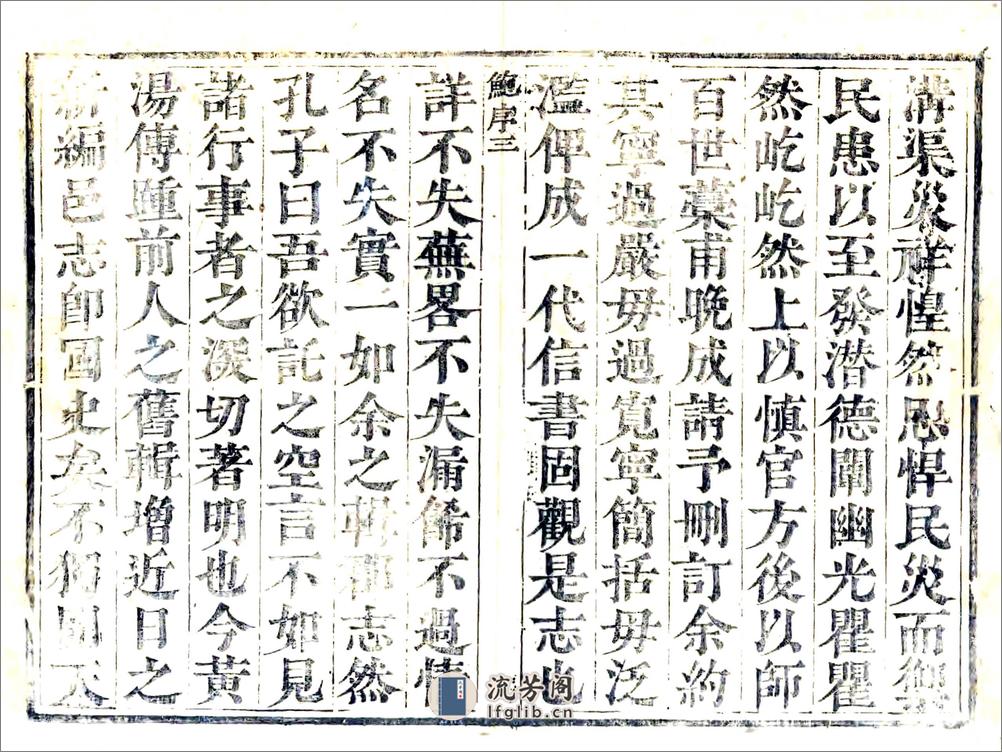 溝渠災祥惶然思悍民災而禦
民患以至發潛德闡幽光瞿瞿
然屹屹然上以慎官方後以師
百世藁甫晚成請予刪訂余約
其寧過嚴毋過寬寧簡括毋泛
濫俾成一代信書固觀是志也
鮑序三
詳不失蕪畧不失漏餙不過情
名不失實一如余之輯郡志然
孔子曰吾欲託之空言不如見
諸行事者之深切著明也今黃
湯傳踵前人之舊輯增近日之
新編邑志卽國史矣不天
流芳阁
lfglib.cn